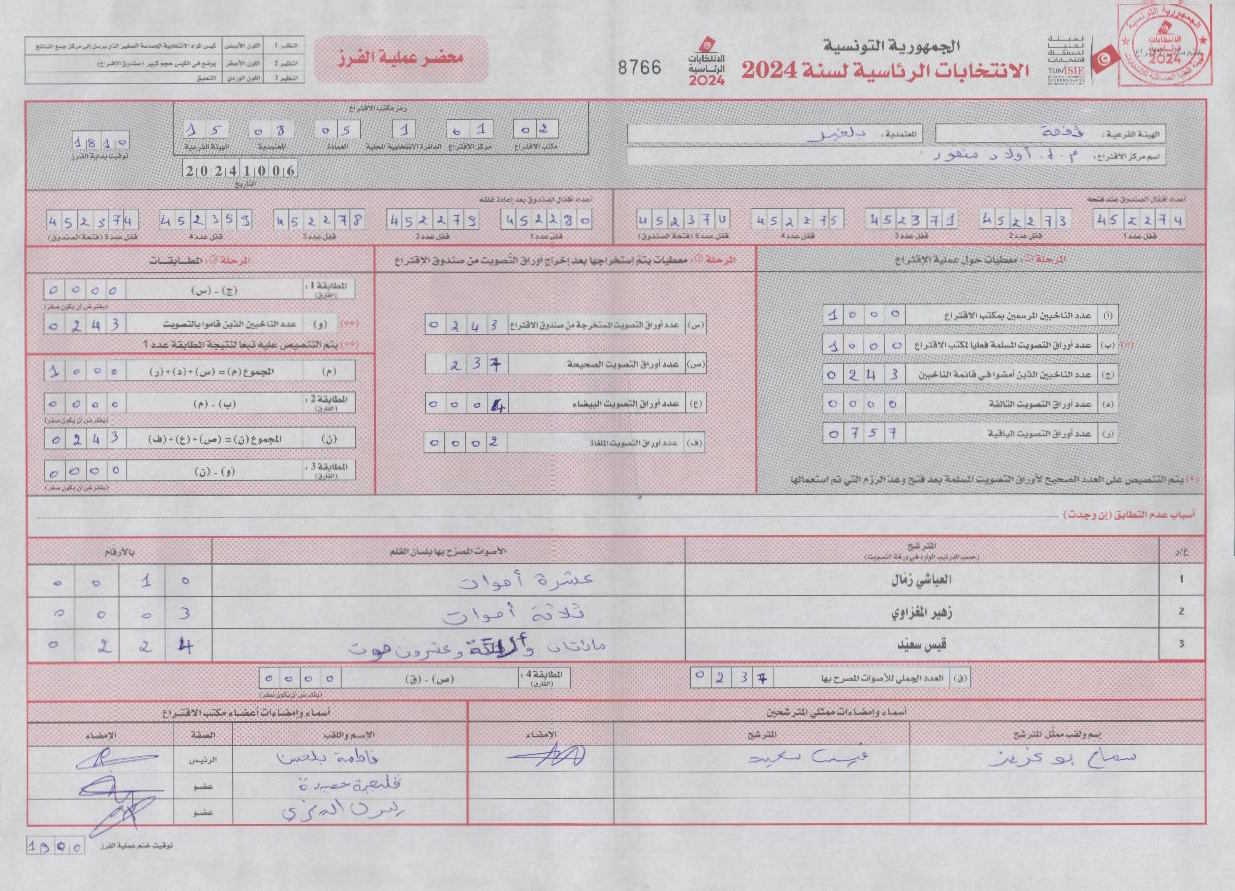 الجمهورية التونسية
الانتخابات الرئاسية لسنة 2024
الانتخابات الرئاسية 2024
8766
محضر عملية الفرز
النظير 1 اللون الأبيض
النظير 2 اللون الأصفر
النظير 3 اللون الوردي التعليق
الهيئة الفرعية : قفصة
المعتمدية :
اسم مركز الاقتراع : م.إ. أولاد منصور
رمز مكتب الاقتراع
02 01 1 05 08 15
مكتب الاقتراع مركز الاقتراع الدائرة الانتخابية المحلية العمادة المعتمدية الهيئة الفرعية
1810
توقيت بداية الفرز
20241006
التاريخ
أعداد أقفال الصندوق عند فتحه
452274 452273 452371 452275 452370
قفل عدد 1 قفل عدد 2 قفل عدد 3 قفل عدد 4 قفل عدد 5 (فتحة الصندوق)
أعداد أقفال الصندوق بعد إعادة غلقه
452280 452279 452278 452359 452374
قفل عدد 1 قفل عدد 2 قفل عدد 3 قفل عدد 4 قفل عدد 5 (فتحة الصندوق)
المرحلة ① : معطيات حول عملية الإقتراع
(أ) عدد الناخبين المرسمين بمكتب الاقتراع 1000
(*) (ب) عدد أوراق التصويت المسلمة فعليا لمكتب الاقتراع 1000
(ج) عدد الناخبين الذين أمضوا في قائمة الناخبين 0243
(د) عدد أوراق التصويت التالفة 0000
(ر) عدد أوراق التصويت الباقية 0757
(*) يتم التنصيص على العدد الصحيح لأوراق التصويت المسلمة بعد فتح وعدّ الرزم التي تم استعمالها
المرحلة ② : معطيات يتم إستخراجها بعد إخراج أوراق التصويت من صندوق الإقتراع
(س) عدد أوراق التصويت المستخرجة من صندوق الاقتراع 0243
(ص) عدد أوراق التصويت الصحيحة 237
(ع) عدد أوراق التصويت البيضاء 0004
(ف) عدد أوراق التصويت الملغاة 0002
المرحلة ③ : المطابقات
المطابقة 1 : (الفارق) (ج) - (س) 0000
(يفترض أن يكون صفر)
(**) (و) عدد الناخبين الذين قاموا بالتصويت 0243
(**) يتم التنصيص عليه تبعا لنتيجة المطابقة عدد 1
(م) المجموع (م) = (س) + (د) + (ر) 1000
المطابقة 2 : (الفارق) (ب) - (م) 0000
(يفترض أن يكون صفر)
(ن) المجموع (ن) = (ص) + (ع) + (ف) 0243
المطابقة 3 : (الفارق) (و) - (ن) 0000
(يفترض أن يكون صفر)
أسباب عدم التطابق (إن وجدت)
ع/د المترشح الأصوات المصرح بها بلسان القلم بالأرقام
(حسب الترتيب الوارد في ورقة التصويت)
1 العياشي زمّال عشرة أصوات 0010
2 زهير المغزاوي ثلاثة أصوات 0003
3 قيس سعيّد مائتان وأربعة وعشرون صوت 0224
(ق) العدد الجملي للأصوات المصرح بها 0237
المطابقة 4 : (الفارق) (ص) - (ق) 0000
(يفترض أن يكون صفر)
أسماء وإمضاءات ممثلي المترشحين
إسم ولقب ممثّل المترشح المترشح الإمضاء
سماح بوعزيز قيس سعيد
أسماء وإمضاءات أعضاء مكتب الاقتراع
الاسم واللقب الصفة الإمضاء
فاطمة الرئيس
عضو
عضو
توقيت ختم عملية الفرز 1900